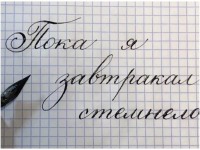 Пока я
завтракал
стемнело